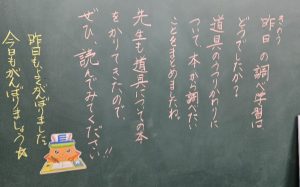 きのう
昨日の調べ学習は
どうでしたか?
道具のうつりかわりに
ついて、本から調べたい
ことをまとめましたね。
先生も道具についての本
をかりてきたので、
ぜひ、読んでみてください!!
昨日もよくがんばりました。
今日もがんばりましょう☆